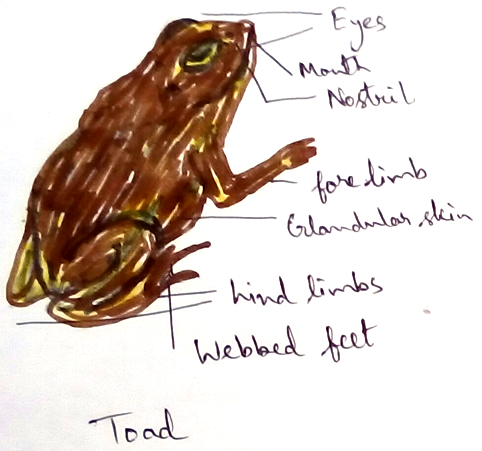 Eyes
Mouth
Nostril
fore limb
Glandular skin
hind limbs
Webbed feet
Toad